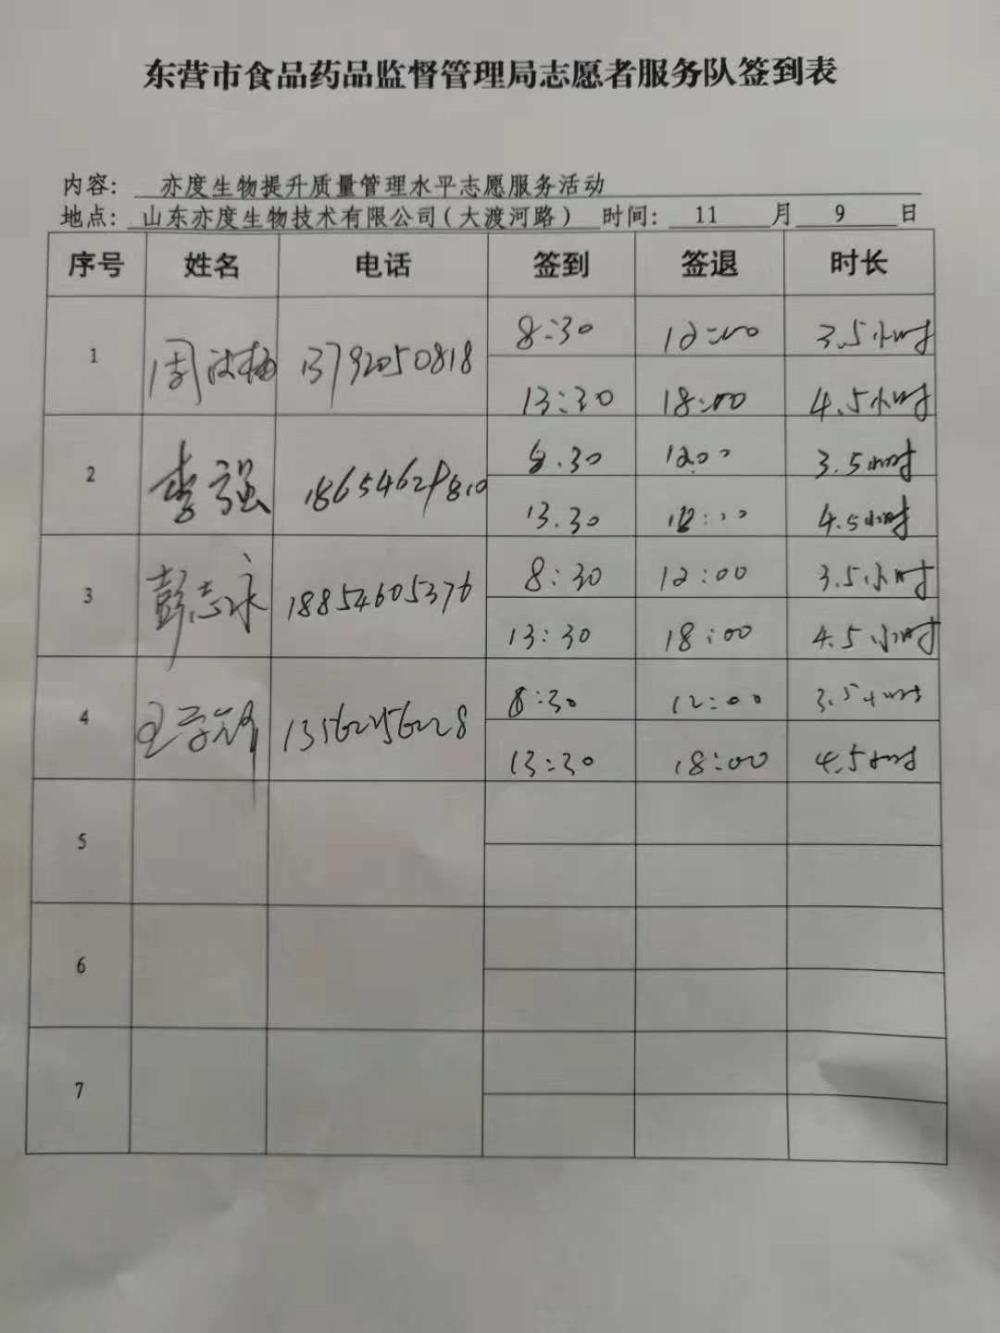 东营市食品药品监督管理局志愿者服务队签到表
内容: 亦度生物提升质量管理水平志愿服务活动
地点: 山东亦度生物技术有限公司(大渡河路) 时间: 11 月 9 日
序号 姓名 电话 签到 签退 时长
1 周 13792050818 8:30 12:00 3.5小时
13:30 18:00 4.5小时
2 李强 8.30 12:00 3.5小时
13.30 4.5小时
3 彭志永 18854605376 8:30 12:00 3.5小时
13:30 18:00 4.5小时
4 王 13562256228 8:30 12:00 3.5小时
13:30 18:00 4.5小时
5
6
7